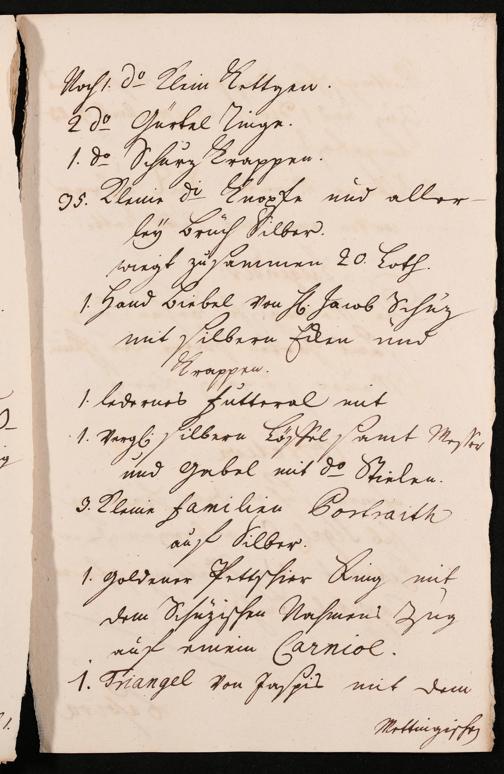 Noch 1. do Klein Kettgen.
2 do Gürtel Ringe.
1. do Schurz Krappen.
35. Kleine di Knöpfe und aller-
ley Bruch Silber.
wiegt zusammen 20. Loth.
1. Hand Biebel von H. Jacob Schüz
mit silbern Ecken und
Krappen.
1. ledernes Futteral mit
1. vergl. silbern Löffel samt Messer
und Gabel mit do Stielen.
3. Kleine Familien Portraith
auf Silber.
1. Goldener Pettschier Ring mit
dem Schüzischen Nahmens Zug
auf einem Carniol.
1. Triangel von Jaspis mit dem
Mettingischen